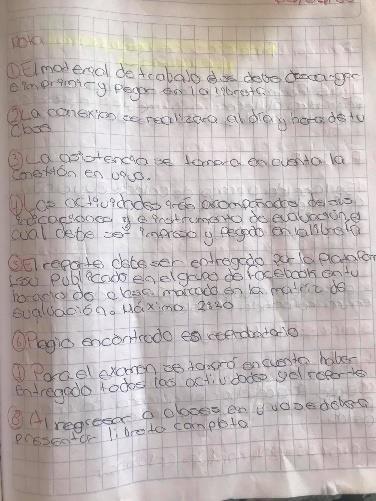 Nota
① El material de trabajo se debe descargar
e imprimir y pegar en la libreta.
② La conexion se realizara el día y hora de tu
clase
③ La asistencia se tomara en cuenta la
conexión en vivo.
④ Las actividades irán acompañados de sus
indicaciones y el instrumento de evaluación el
cual debe ser impreso y pegado en la libreta
⑤ El reporte debe ser entregado por la
publicado en el grupo de facebook en tu
horario de clase marcado en la matriz de
evaluación. Máximo
⑥ Plagio encontrado es
⑦ Para el examen se tomará en cuenta haber
entregado todas las actividades y el reporte
⑧ Al regresar a clases en se debera
presentar libreta completa